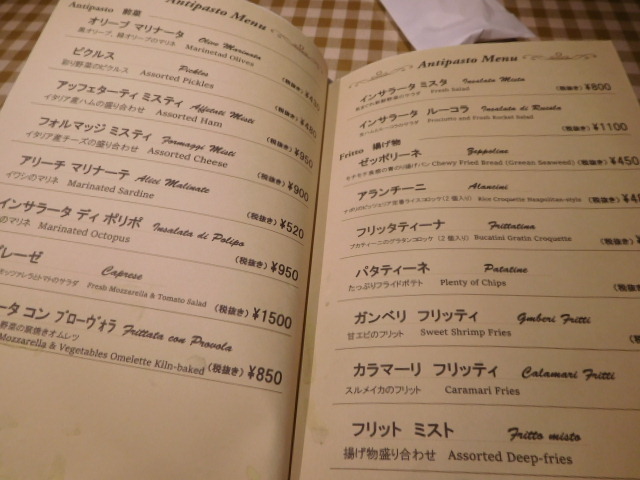 Antipasto Menu
Antipasto 前菜
オリーブ マリナータ Olive Marinata
黒オリーブ、緑オリーブのマリネ Marinetad Olives
ピクルス Pickles
彩り野菜のピクルス Assorted Pickles
(税抜き)
アッフェターティ ミスティ Affetati Misti
イタリア産ハムの盛り合わせ Assorted Ham
(税抜き) ¥480
フォルマッジ ミスティ Formaggi Misti
イタリア産チーズの盛り合わせ Assorted Cheese
(税抜き) ¥950
アリーチ マリナーテ Alici Malinate
イワシのマリネ Marinated Sardine
(税抜き) ¥900
インサラータ ディ ポリポ Insalata di Polipo
のマリネ Marinated Octopus
(税抜き) ¥520
プレーゼ Caprese
モッツァレラとトマトのサラダ Fresh Mozzarella & Tomato Salad
(税抜き) ¥950
ータ コン プローヴォラ Frittata con Provola
(税抜き) ¥1500
野菜の窯焼きオムレツ
Mozzarella & Vegetables Omelette Kiln-baked (税抜き) ¥850
Antipasto Menu
インサラータ ミスタ Insalata Mista
Fresh Salad
(税抜き) ¥800
インサラータ ルーコラ Insalata di Rucola
Prociutto and Fresh Rocket Salad
(税抜き) ¥1100
Fritto 揚げ物
ゼッポリーネ Zeppoline
モチモチ食感の青のり揚げパン Chewy Fried Bread (Grean Seaweed) (税抜き) ¥450
アランチーニ Alancini
ライスコロッケ(2個入り) Rice Croquette Neapolitan-style (税抜き)
フリッタティーナ Frittatina
ブカティーニのグラタンコロッケ (2個入り) Bucatini Gratin Croquette (税抜き)
パタティーネ Patatine
たっぷりフライドポテト Plenty of Chips
(税抜き)
ガンベリ フリッティ Gmberi Fritti
甘エビのフリット Sweet Shrimp Fries
カラマーリ フリッティ Calamari Fritti
スルメイカのフリット Caramari Fries
フリット ミスト Fritto misto
揚げ物盛り合わせ Assorted Deep-fries